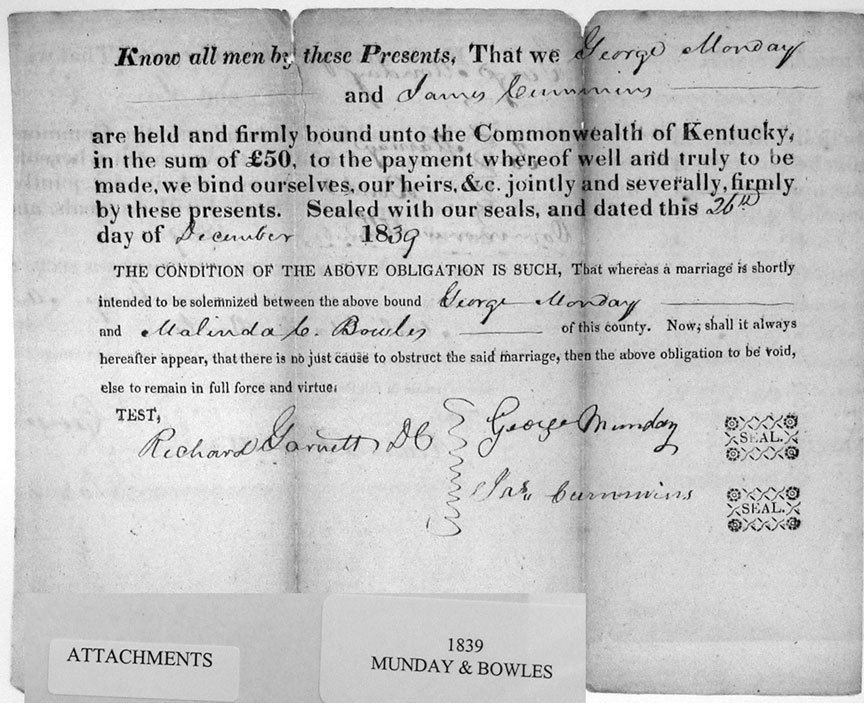 Know all men by these Presents, That we George Monday
and James Cummins
are held and firmly bound unto the Commonwealth of Kentucky,
in the sum of £50, to the payment whereof well and truly to be
made, we bind ourselves, our heirs, &c. jointly and severally, firmly
by these presents. Sealed with our seals, and dated this 26th
day of December 1839
THE CONDITION OF THE ABOVE OBLIGATION IS SUCH, That whereas a marriage is shortly
intended to be solemnized between the above bound George Monday
and Malinda C. Bowles of this county. Now, shall it always
hereafter appear, that there is no just cause to obstruct the said marriage, then the above obligation to be void,
else to remain in full force and virtue.
TEST,
Richard Garnett DC
George Munday
SEAL.
Jas. Cummins
SEAL.
ATTACHMENTS
1839
MUNDAY & BOWLES